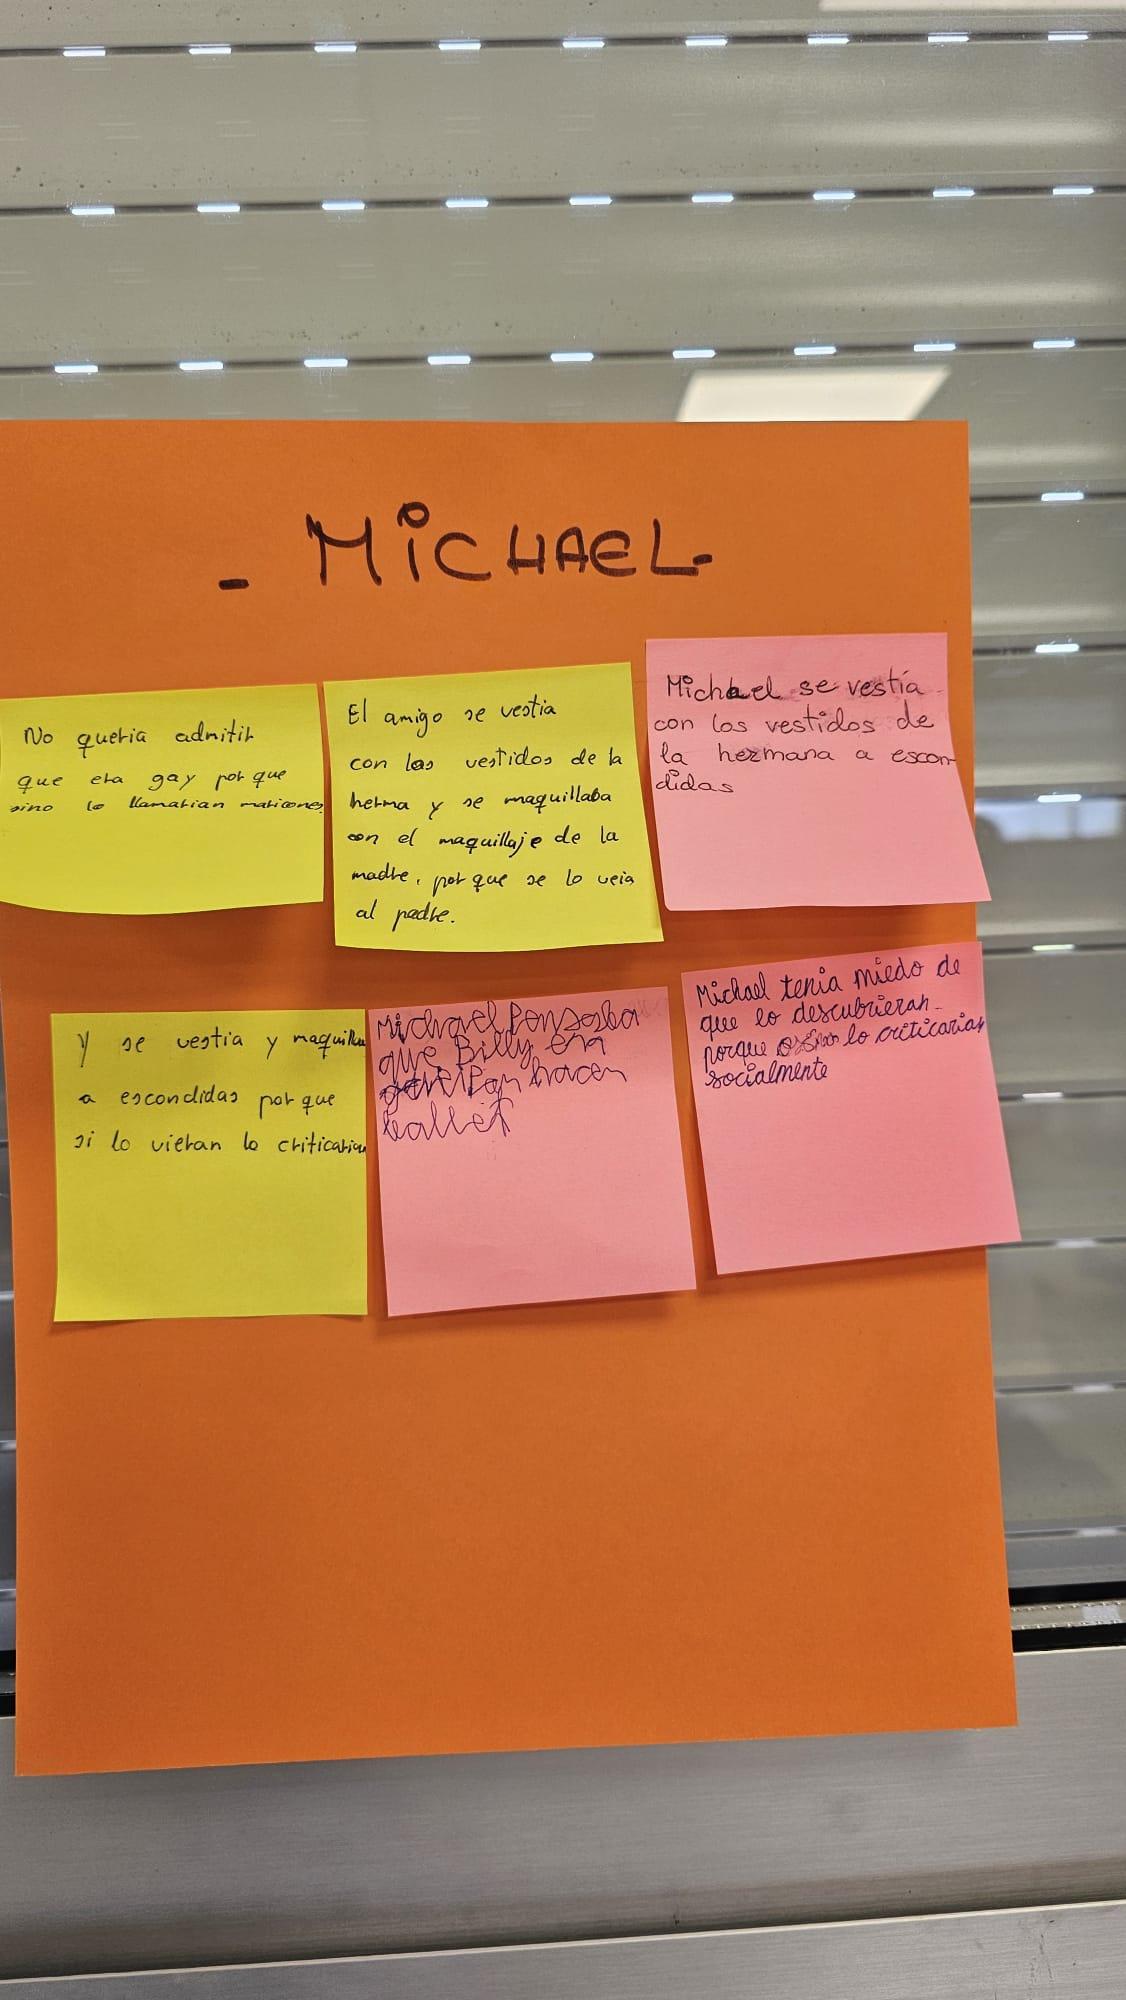 - MiCHAEL-
No queria admitir
que era gay por que
sino lo llamarian maricones
El amigo se vestia
con los vestidos de la
herma y se maquillaba
con el maquillaje de la
madre, por que se lo veia
al padre.
Michael se vestía
con los vestidos de
la hermana a escon-
didas
y se vestia y maquilla
a escondidas por que
si lo vieran lo criticarian
Michael Pensaba
que Billy era
gay Por hacer
ballet
Michael tenia miedo de
que lo descubrieran
porque sino lo criticarian
socialmente